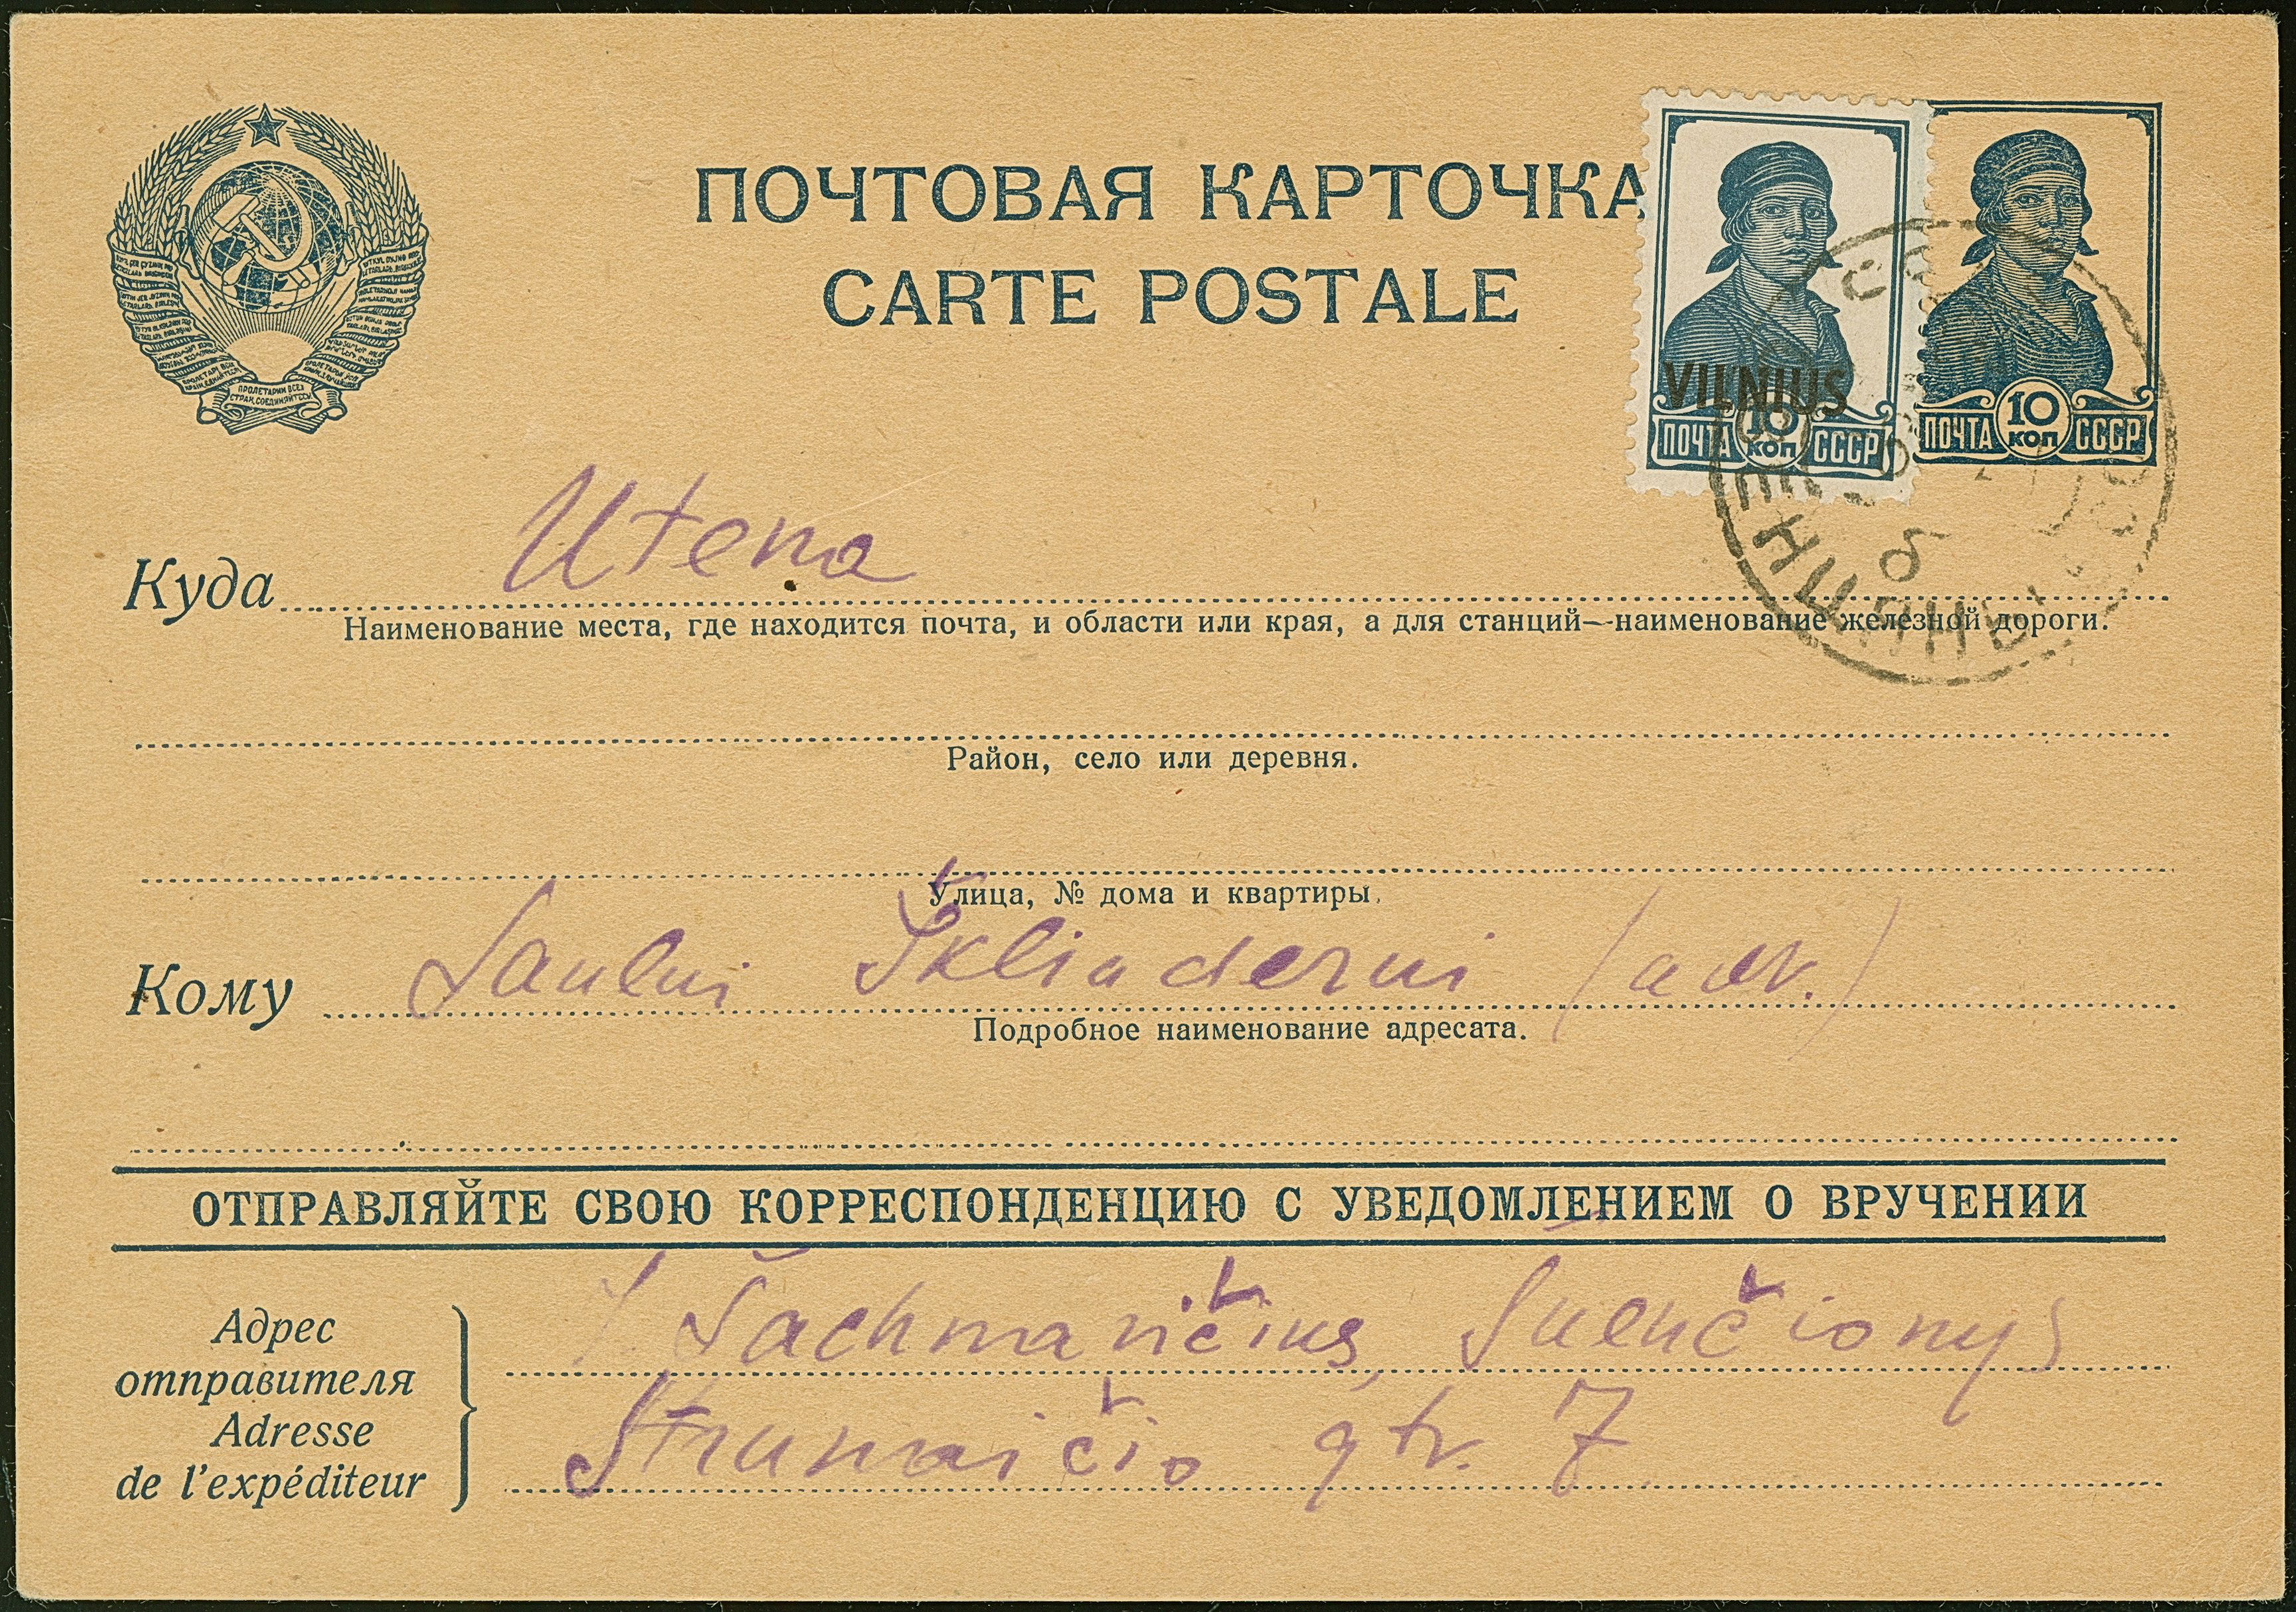 ПОЧТОВАЯ КАРТОЧКА
CARTE POSTALE
VILNIUS
ПОЧТА 10 КОП СССР
ПОЧТА 10 КОП СССР
ПРОЛЕТАРИИ ВСЕХ СТРАН, СОЕДИНЯЙТЕСЬ!
б
Utena
Куда
Наименование места, где находится почта, и области или края, а для станций—наименование железной дороги.
Район, село или деревня.
Улица, № дома и квартиры.
Кому Šauliui Škliaderui (adv.)
Подробное наименование адресата.
ОТПРАВЛЯЙТЕ СВОЮ КОРРЕСПОНДЕНЦИЮ С УВЕДОМЛЕНИЕМ О ВРУЧЕНИИ
Адрес
отправителя
Adresse
de l'expéditeur
Šachnavičius Švenčionys
Strunaičio gtv. 7